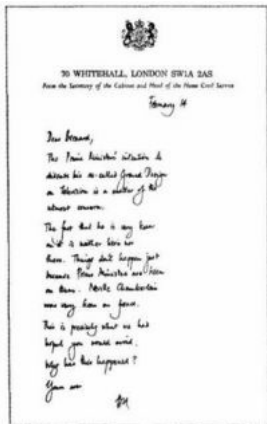 70 WHITEHALL, LONDON SW1A 2AS
From the Secretary of the Cabinet and Head of the Home Civil Service
February 14
Dear Bernard,
The Prime Minister's intention to
discuss his so-called Grand Design
on Television is a matter of the
utmost concern.
The fact that he is very keen
on it is neither here nor
there. Things don't happen just
because Prime Ministers are keen
on them. Neville Chamberlain
was very keen on peace.
This is precisely what we had
hoped you would avoid.
Why has this happened?
Yours ever